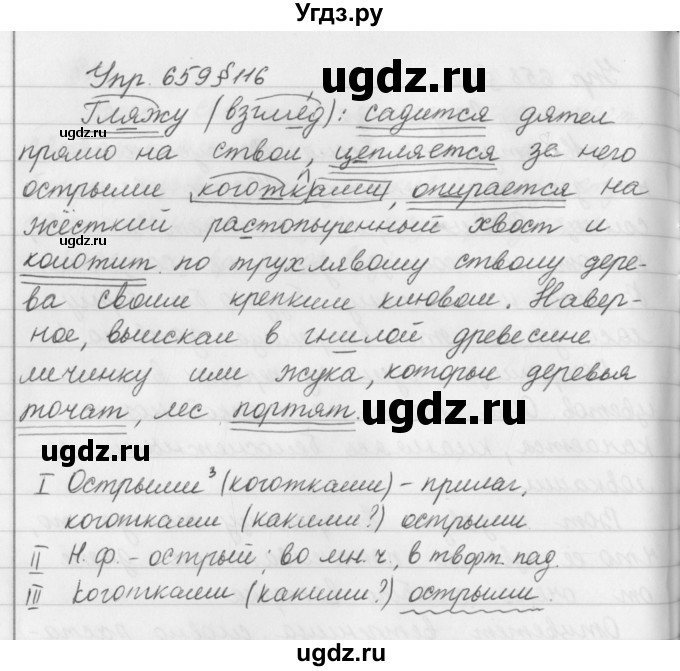 Угдз.ру
Упр. 659 § 116
ugdz.ru
Гляжу (взгляд): садится дятел
ugdz.ru
прямо на ствол, цепляется за него
острыми коготками, опирается на
жёсткий растопыренный хвост и
колотит по трухлявому стволу дере-
ва своим крепким клювом. Навер-
ное, выискал в гнилой древесине
личинку или жука, которые деревья
точат, лес портят.
ugdz.ru
ugdz.ru
I Острыми³ (коготками) – прилаг,
коготками (какими?) острыми
II Н.ф. – острый; во мн.ч, в творт. пад.
III Коготками (какими?) острыми.
ugdz.ru
Угдз.ру